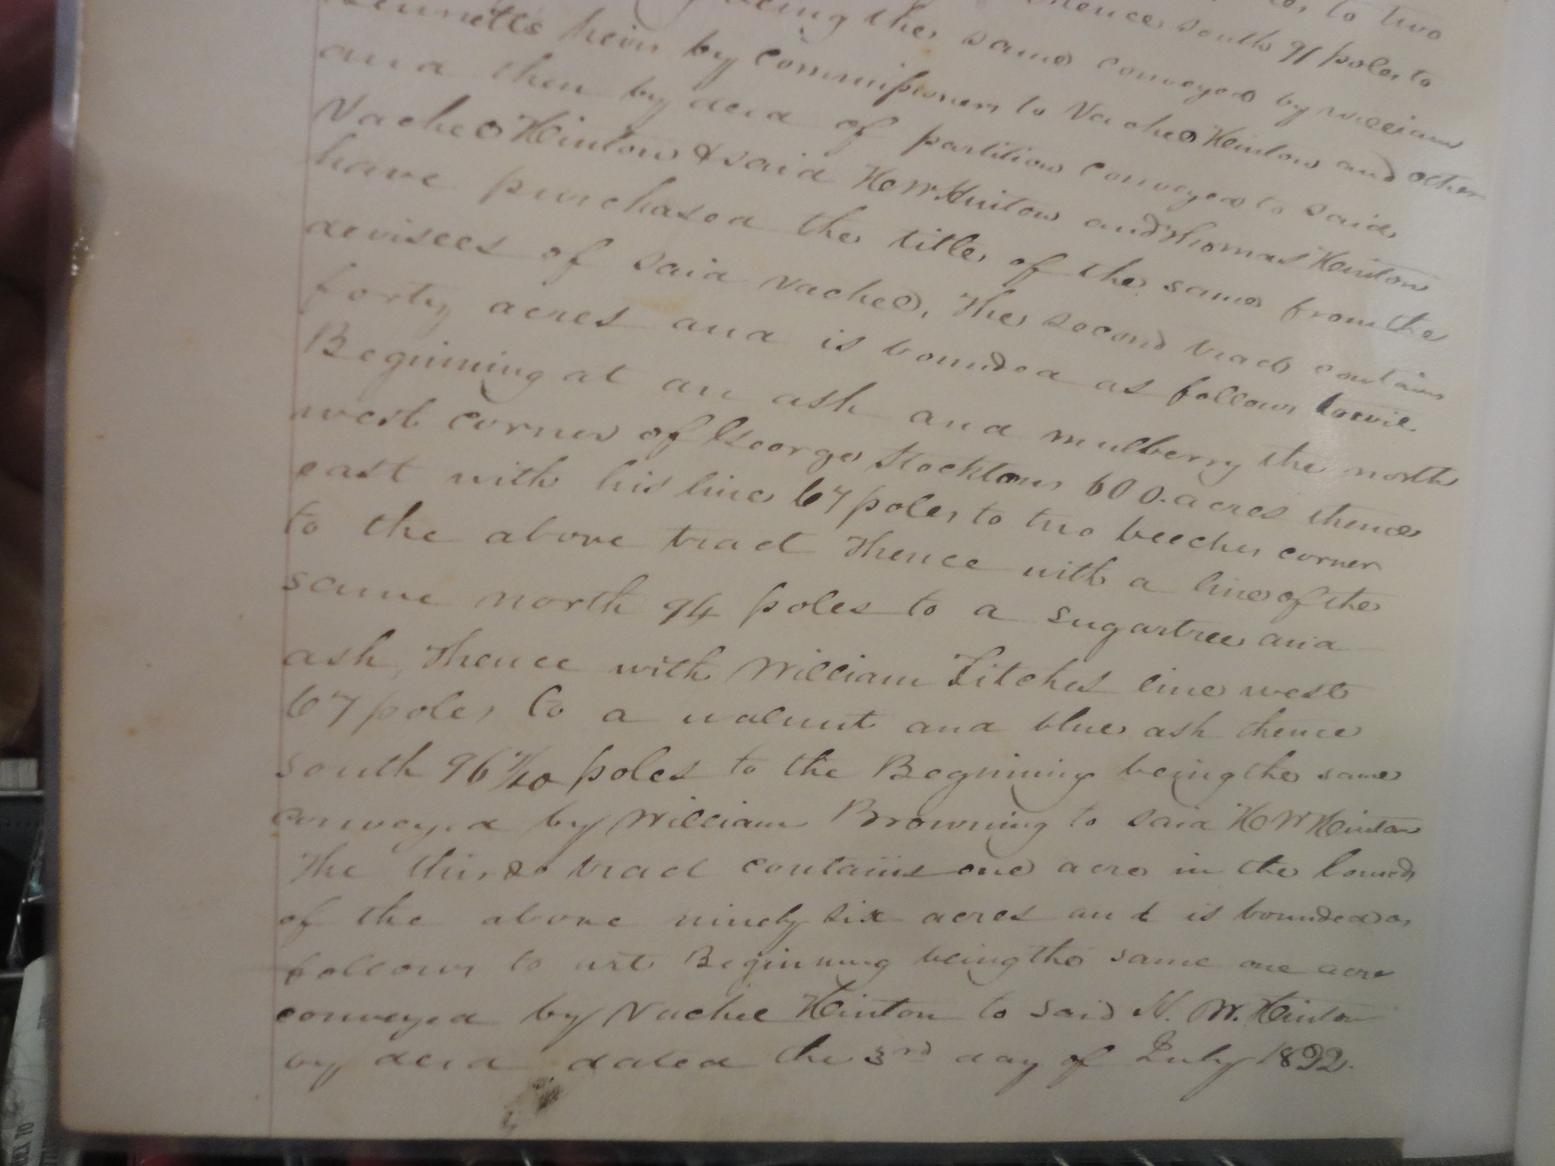 to two
thence south 91 poles to
being the same conveyed by William
Bennetts heirs by commissioners to Vachel Hinton and other
and then by deed of partition conveyed to said
Vachel Hinton & said H W Hinton and Thomas Hinton
have purchased the title of the same from the
devisees of said Vachel, The second tract contains
forty acres and is bounded as follows towit
Beginning at an ash and mulberry the north
west corner of George Stocktons 600 acres thence
east with his line 67 poles to two beeches corner
to the above tract thence with a line of the
same north 94 poles to a sugartree and
ash, thence with William Fitches line west
67 poles to a walnut and blue ash thence
south 96 poles to the Beginning being the same
conveyed by William Browning to said H W Hinton
The third tract contains one acre in the
of the above ninety six acres and is bounded as
follows to wit Beginning being the same one acre
conveyed by Vachel Hinton to said H. W. Hinton
by deed dated the 3rd day of July 1892.